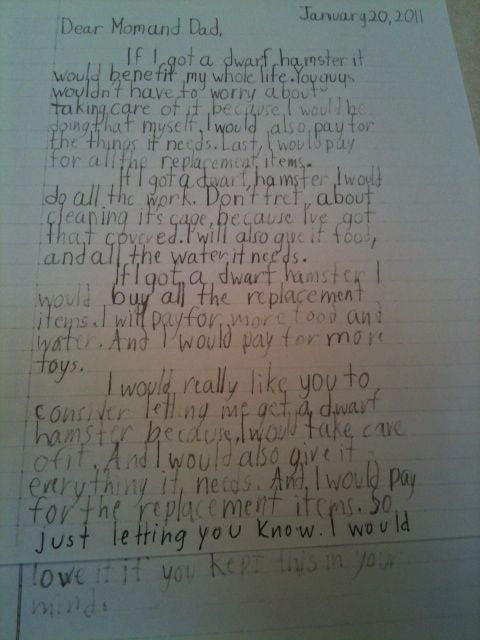 January 20, 2011
Dear Mom and Dad,
If I got a dwarf hamster it
would benefit my whole life. You guys
wouldn't have to worry about
taking care of it because I would be
doing that myself. I would also pay for
the things it needs. Last, I would pay
for all the replacement items.
If I got a dwarf hamster I would
do all the work. Don't fret about
cleaning it's cage, because I've got
that covered. I will also give it food,
and all the water it needs.
If I got a dwarf hamster I
would buy all the replacement
items. I will pay for more food and
water. And I would pay for more
toys.
I would really like you to
consider letting me get a dwarf
hamster because, I would take care
of it. And I would also give it
everything it needs. And, I would pay
for the replacement items. So
just letting you know. I would
love it if you kept this in your
mind.